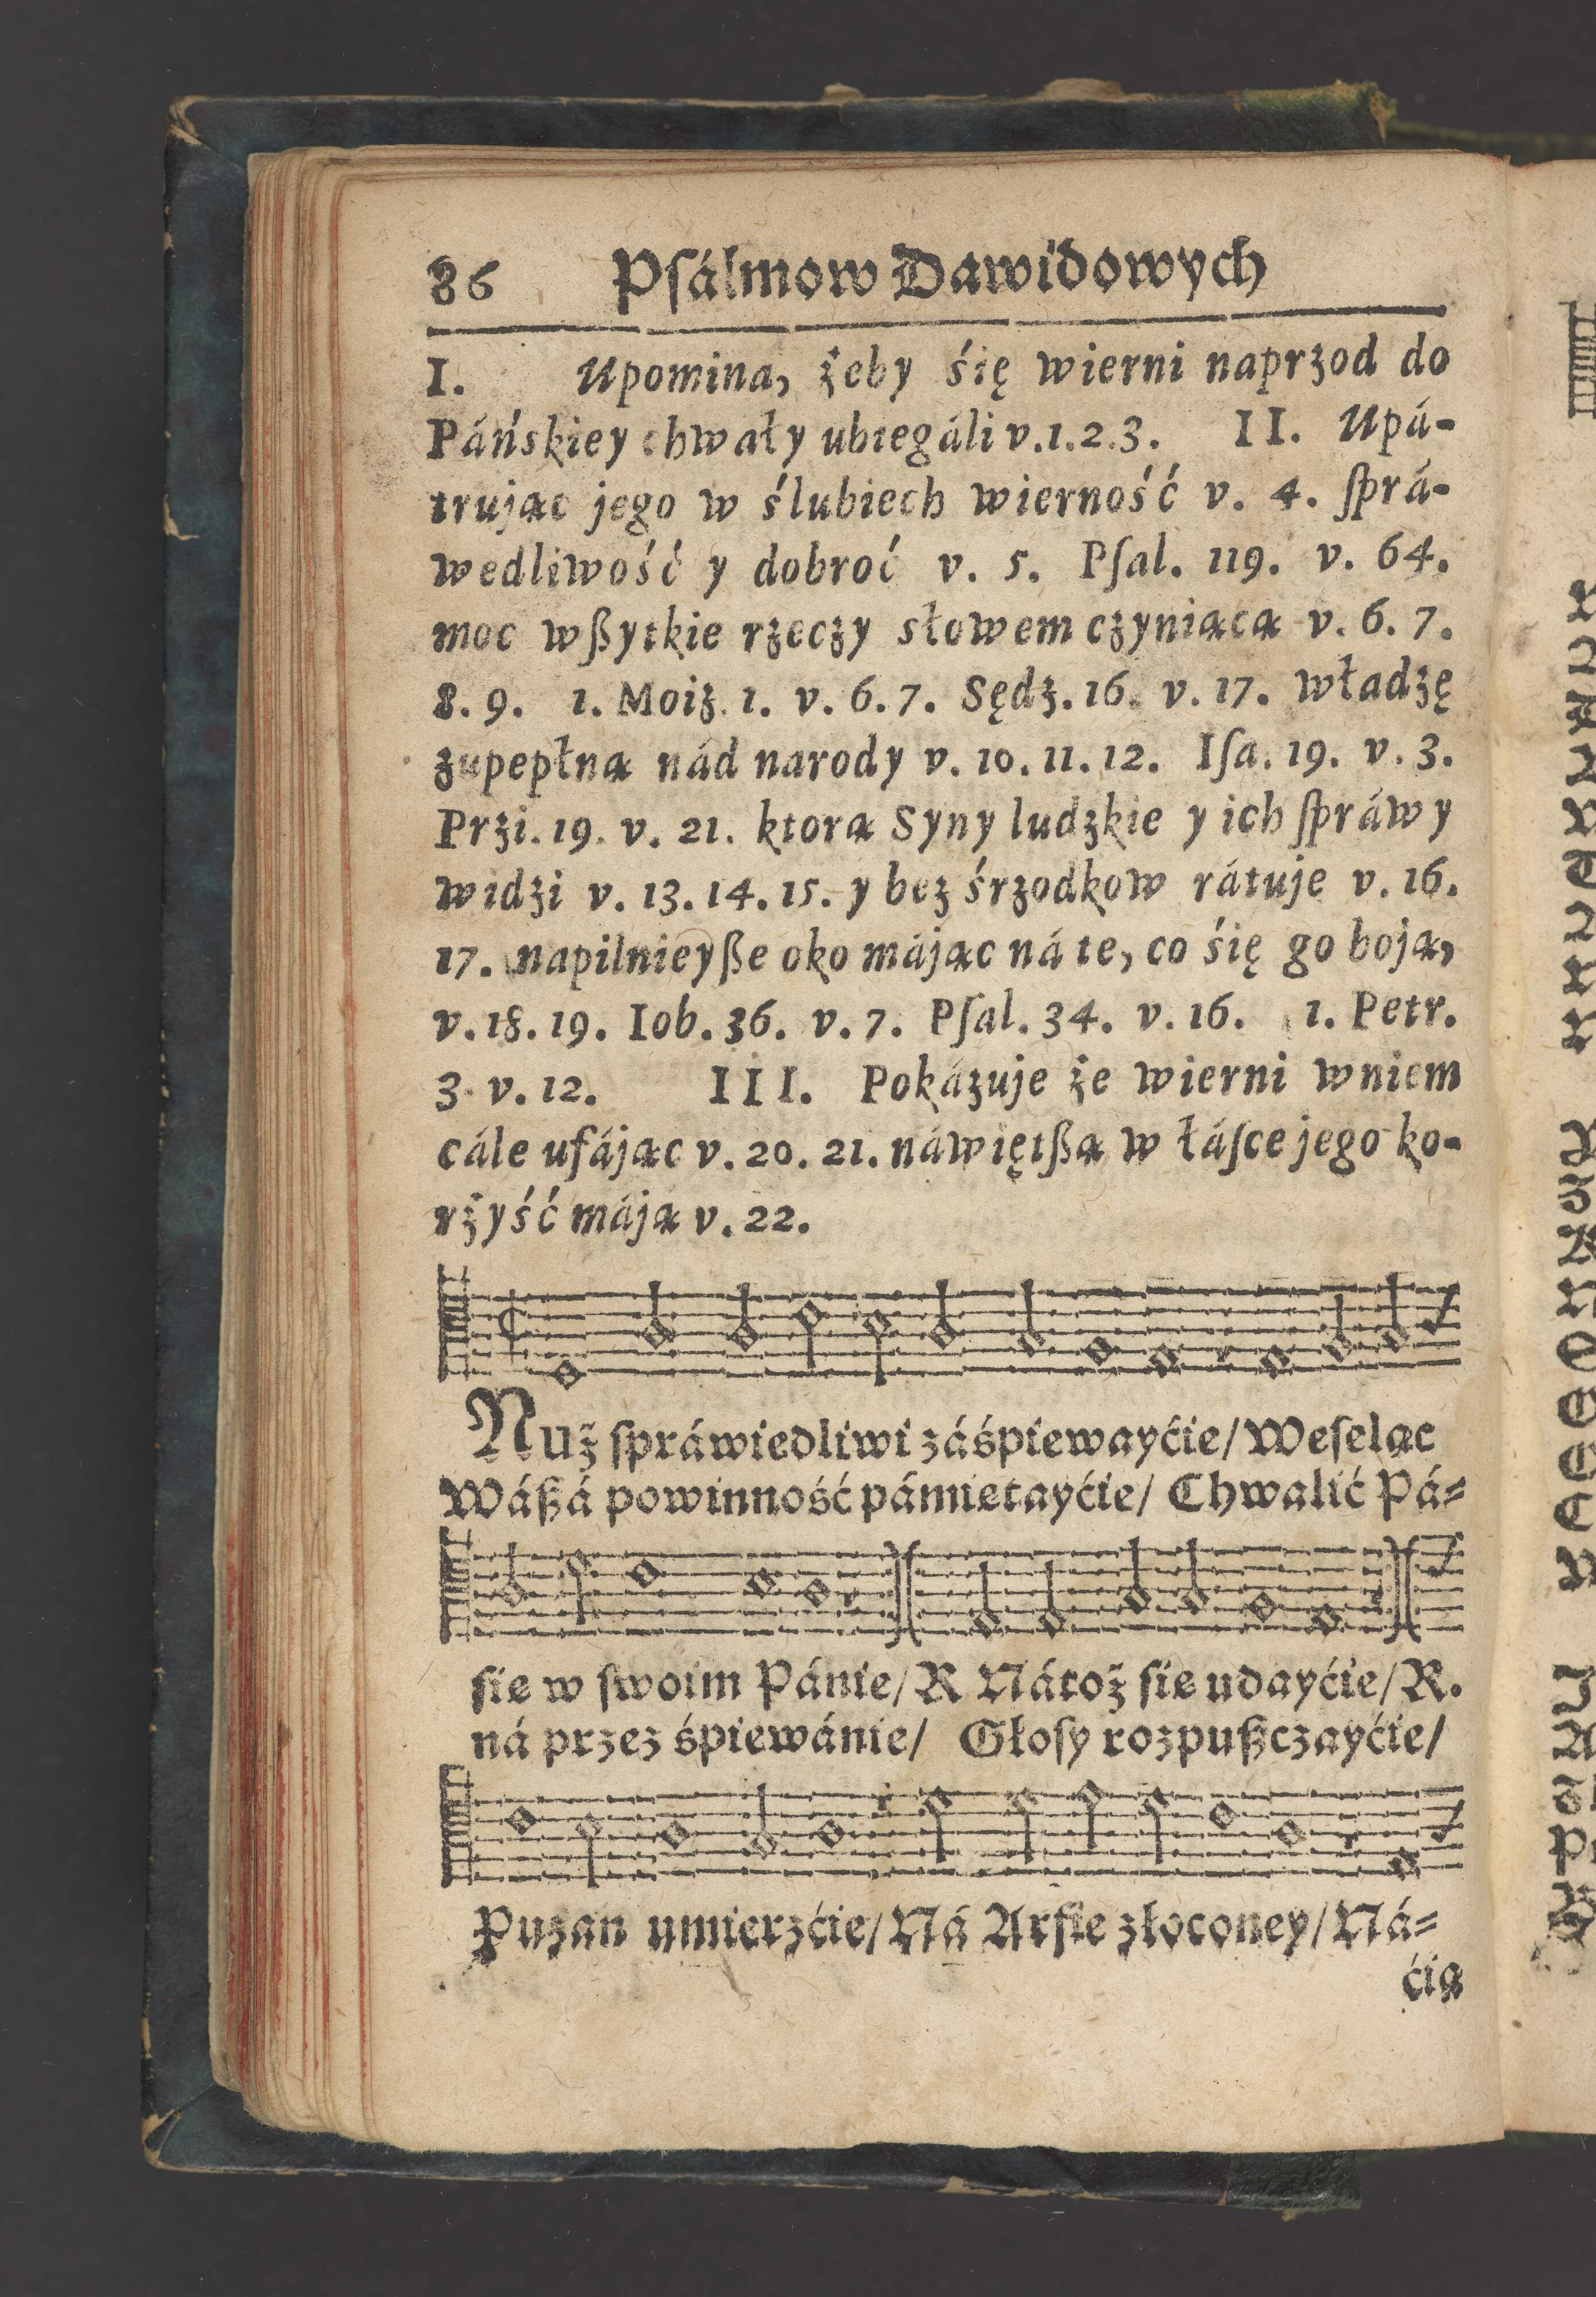 86 Psálmow Dawidowych
I. Upomina, żeby śię wierni naprzod do
Páńskiey chwały ubiegáli v.1.2.3. II. Upá-
trując jego w ślubiech wierność v. 4. ſprá-
wedliwość y dobroć v. 5. Pſal. 119. v. 64.
moc wßytkie rzeczy słowem czyniąca v. 6. 7.
8. 9. 1. Moiz. 1. v. 6. 7. Sędz. 16. v. 17. władzę
zupepłną nád narody v. 10. 11. 12. Iſa. 19. v. 3.
Przi. 19. v. 21. ktora Syny ludzkie y ich ſpráwy
widzi v. 13. 14. 15. y bez śrzodkow rátuje v. 16.
17. napilnieyße oko májąc ná te, co śię go boją,
v. 18. 19. Iob. 36. v. 7. Pſal. 34. v. 16. 1. Petr.
3. v. 12. III. Pokázuje że wierni wniem
cále ufájąc v. 20. 21. náwiętßą w łáſce jego ko-
rżyść máją v. 22.
Nuż ſpráwiedliwi záśpiewayćie/ Weſeląc
Wáßá powinność pámiętayćie/ Chwalić Pá⸗
ſię w ſwoim Pánie/ R Nátoż ſię udayćie/ R.
ná przez śpiewánie/ Głoſy rozpußczayćie/
Puzan umierzćie/ Ná Arfie złoconey/ Ná⸗
ćią